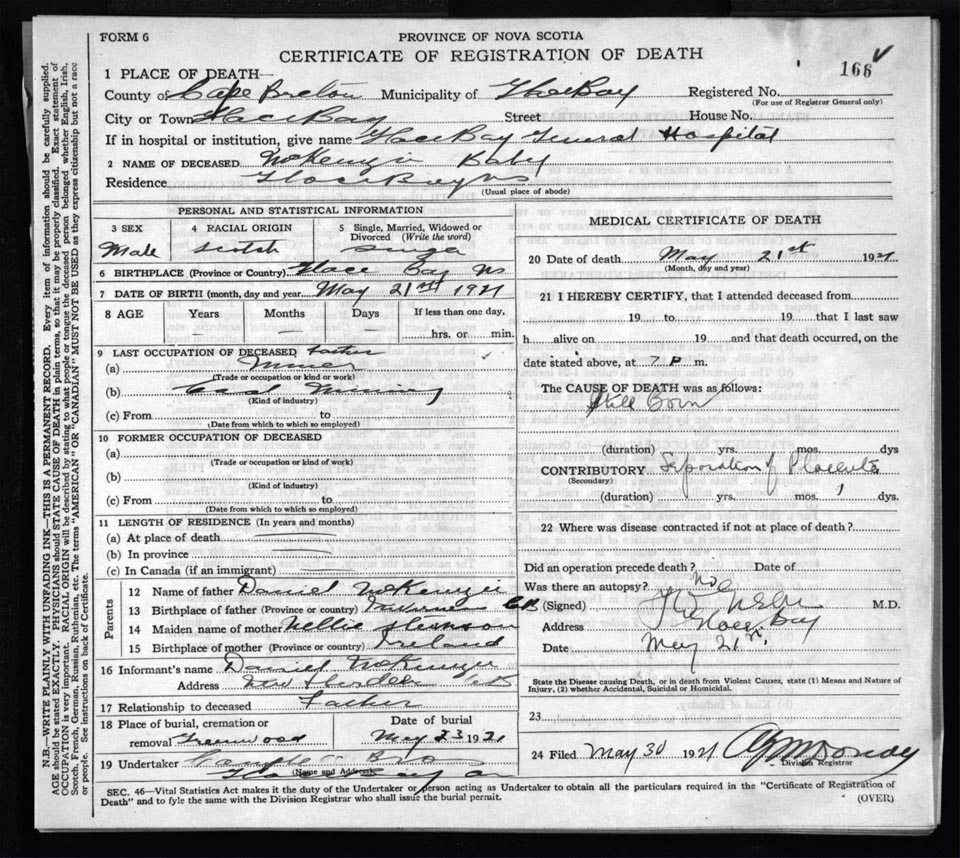 FORM 6
PROVINCE OF NOVA SCOTIA
CERTIFICATE OF REGISTRATION OF DEATH
166
1 PLACE OF DEATH—
County of Cape Breton Municipality of Glace Bay Registered No.
(For use of Registrar General only)
City or Town Glace Bay Street House No.
If in hospital or institution, give name Glace Bay General Hospital
2 NAME OF DECEASED McKenzie Baby
Residence Glace Bay ns
(Usual place of abode)
PERSONAL AND STATISTICAL INFORMATION
3 SEX Male
4 RACIAL ORIGIN Scotch
5 Single, Married, Widowed or Divorced (Write the word) Single
6 BIRTHPLACE (Province or Country) Glace Bay Ns
7 DATE OF BIRTH (month, day and year May 21st 1921
8 AGE Years Months Days If less than one day,
hrs. or min.
9 LAST OCCUPATION OF DECEASED father
(a) Miner
(Trade or occupation or kind or work)
(b) Coal Mining
(Kind of industry)
(c) From to
(Date from which to which so employed)
10 FORMER OCCUPATION OF DECEASED
(a)
(Trade or occupation or kind of work)
(b)
(Kind of industry)
(c) From to
(Date from which to which so employed)
11 LENGTH OF RESIDENCE (In years and months)
(a) At place of death
(b) In province
(c) In Canada (if an immigrant)
Parents
12 Name of father Daniel McKenzie
13 Birthplace of father (Province or country) Inverness CB
14 Maiden name of mother Nellie
15 Birthplace of mother (Province or country) Ireland
16 Informant's name Daniel McKenzie
Address New Aberdeen CB
17 Relationship to deceased Father
18 Place of burial, cremation or removal Greenwood
Date of burial May 23 1921
19 Undertaker Bros
(Name and Address) Glace Bay
MEDICAL CERTIFICATE OF DEATH
20 Date of death May 21st 1921
(Month, day and year)
21 I HEREBY CERTIFY, that I attended deceased from
19 to 19 that I last saw
h alive on 19 and that death occurred, on the
date stated above, at 7 P m.
The CAUSE OF DEATH was as follows:
Still Born
(duration) yrs. mos. dys
CONTRIBUTORY Separation of Placenta
(Secondary)
(duration) yrs. mos. 1 dys.
22 Where was disease contracted if not at place of death?
Did an operation precede death? Date of
Was there an autopsy? No
(Signed) M.D.
Address Glace Bay
Date May 21st
State the Disease causing Death, or in death from Violent Causes, state (1) Means and Nature of Injury, (2) whether Accidental, Suicidal or Homicidal.
23
24 Filed May 30 1921
Division Registrar
SEC. 46—Vital Statistics Act makes it the duty of the Undertaker or person acting as Undertaker to obtain all the particulars required in the "Certificate of Registration of
Death" and to fyle the same with the Division Registrar who shall issue the burial permit.
(OVER)
N.B.—WRITE PLAINLY WITH UNFADING INK—THIS IS A PERMANENT RECORD. Every item of information should be carefully supplied.
AGE should be stated EXACTLY. PHYSICIANS should STATE CAUSE OF DEATH in plain terms, so that it may be properly classified. Exact statement of
OCCUPATION is very important. RACIAL ORIGIN will be described by stating to what people or tongue the deceased person belonged whether English, Irish,
Scotch, French, German, Russian, Ruthenian, etc. The terms "AMERICAN" OR "CANADIAN" MUST NOT BE USED as they express citizenship but not a race
or people. See instructions on back of Certificate.